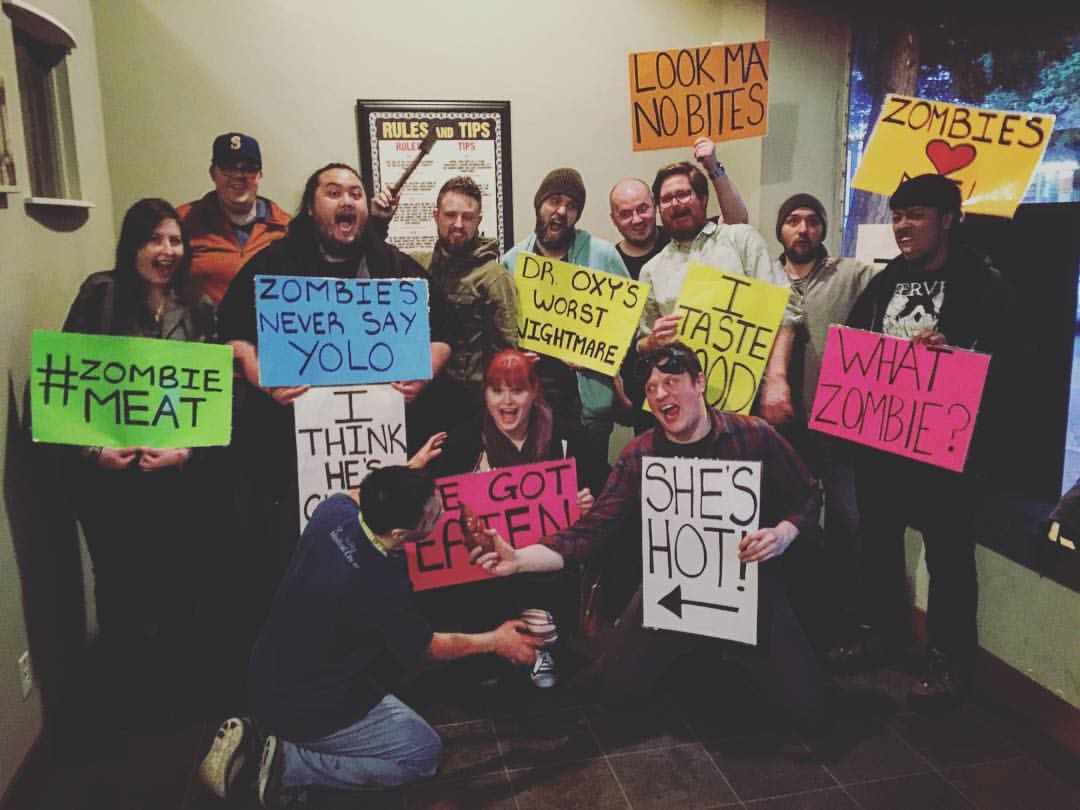 LOOK MA
NO BITES
ZOMBIES
S
RULES AND TIPS
RULES
TIPS
ZOMBIES
NEVER SAY
YOLO
DR. OXY'S
WORST
NIGHTMARE
I
TASTE
#ZOMBIE
MEAT
WHAT
ZOMBIE?
I
THINK
HE'S
GOT
EATEN
SHE'S
HOT!